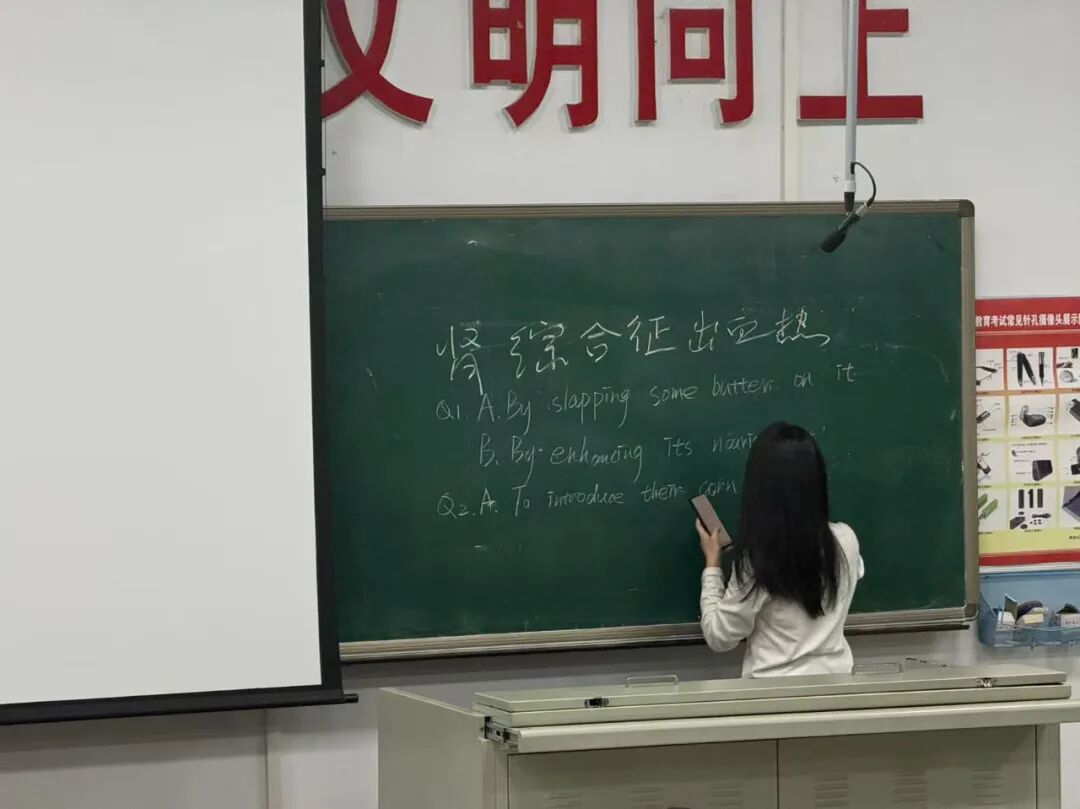 文明向上
肾综合征出血热
Q1. A. By slapping some butter on it
B. By enhancing its
Q2. A. To introduce their corn
教育考试常见针孔摄像头展示